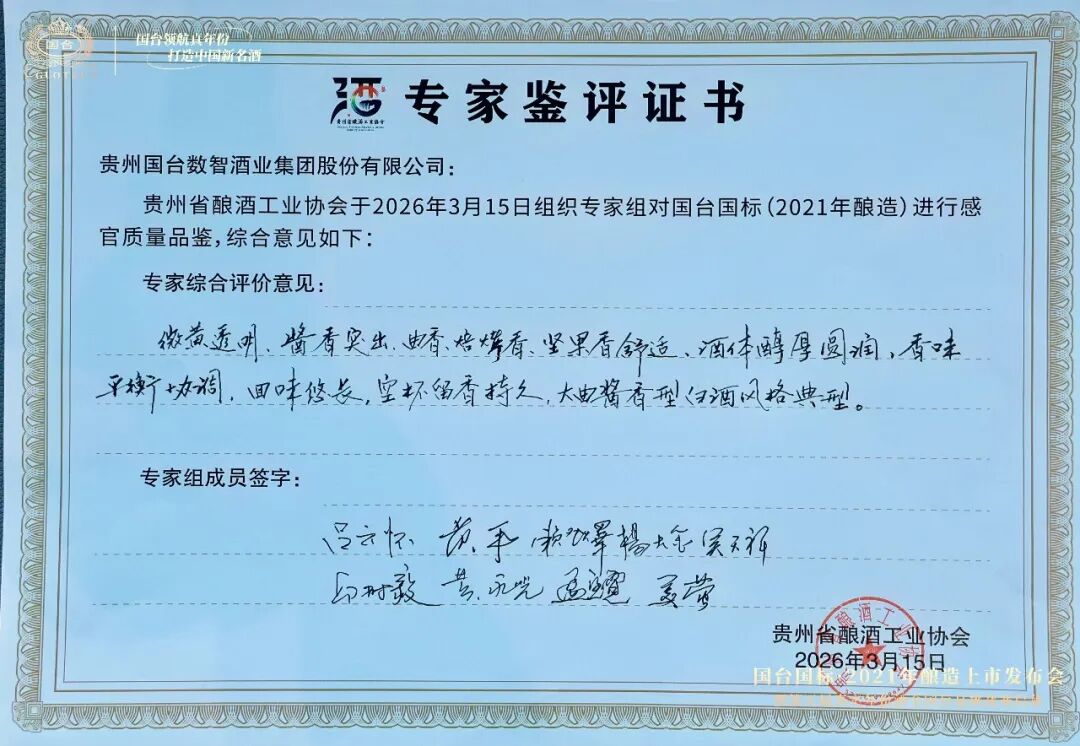 国台
GUOTAI
国台领航真年份
打造中国新名酒
酒
贵州省酿酒工业协会
专家鉴评证书
贵州国台数智酒业集团股份有限公司：
贵州省酿酒工业协会于2026年3月15日组织专家组对国台国标（2021年酿造）进行感
官质量品鉴，综合意见如下：
专家综合评价意见：
微黄透明、酱香突出、曲香、焙烤香、坚果香舒适、酒体醇厚圆润、香味
平衡协调，回味悠长，空杯留香持久，大曲酱香型白酒风格典型。
专家组成员签字：
吕云怀 黄平 杨大金 吴天祥
黄永光 孟望霓
贵州省酿酒工业协会
2026年3月15日
国台国标·2021年酿造上市发布会